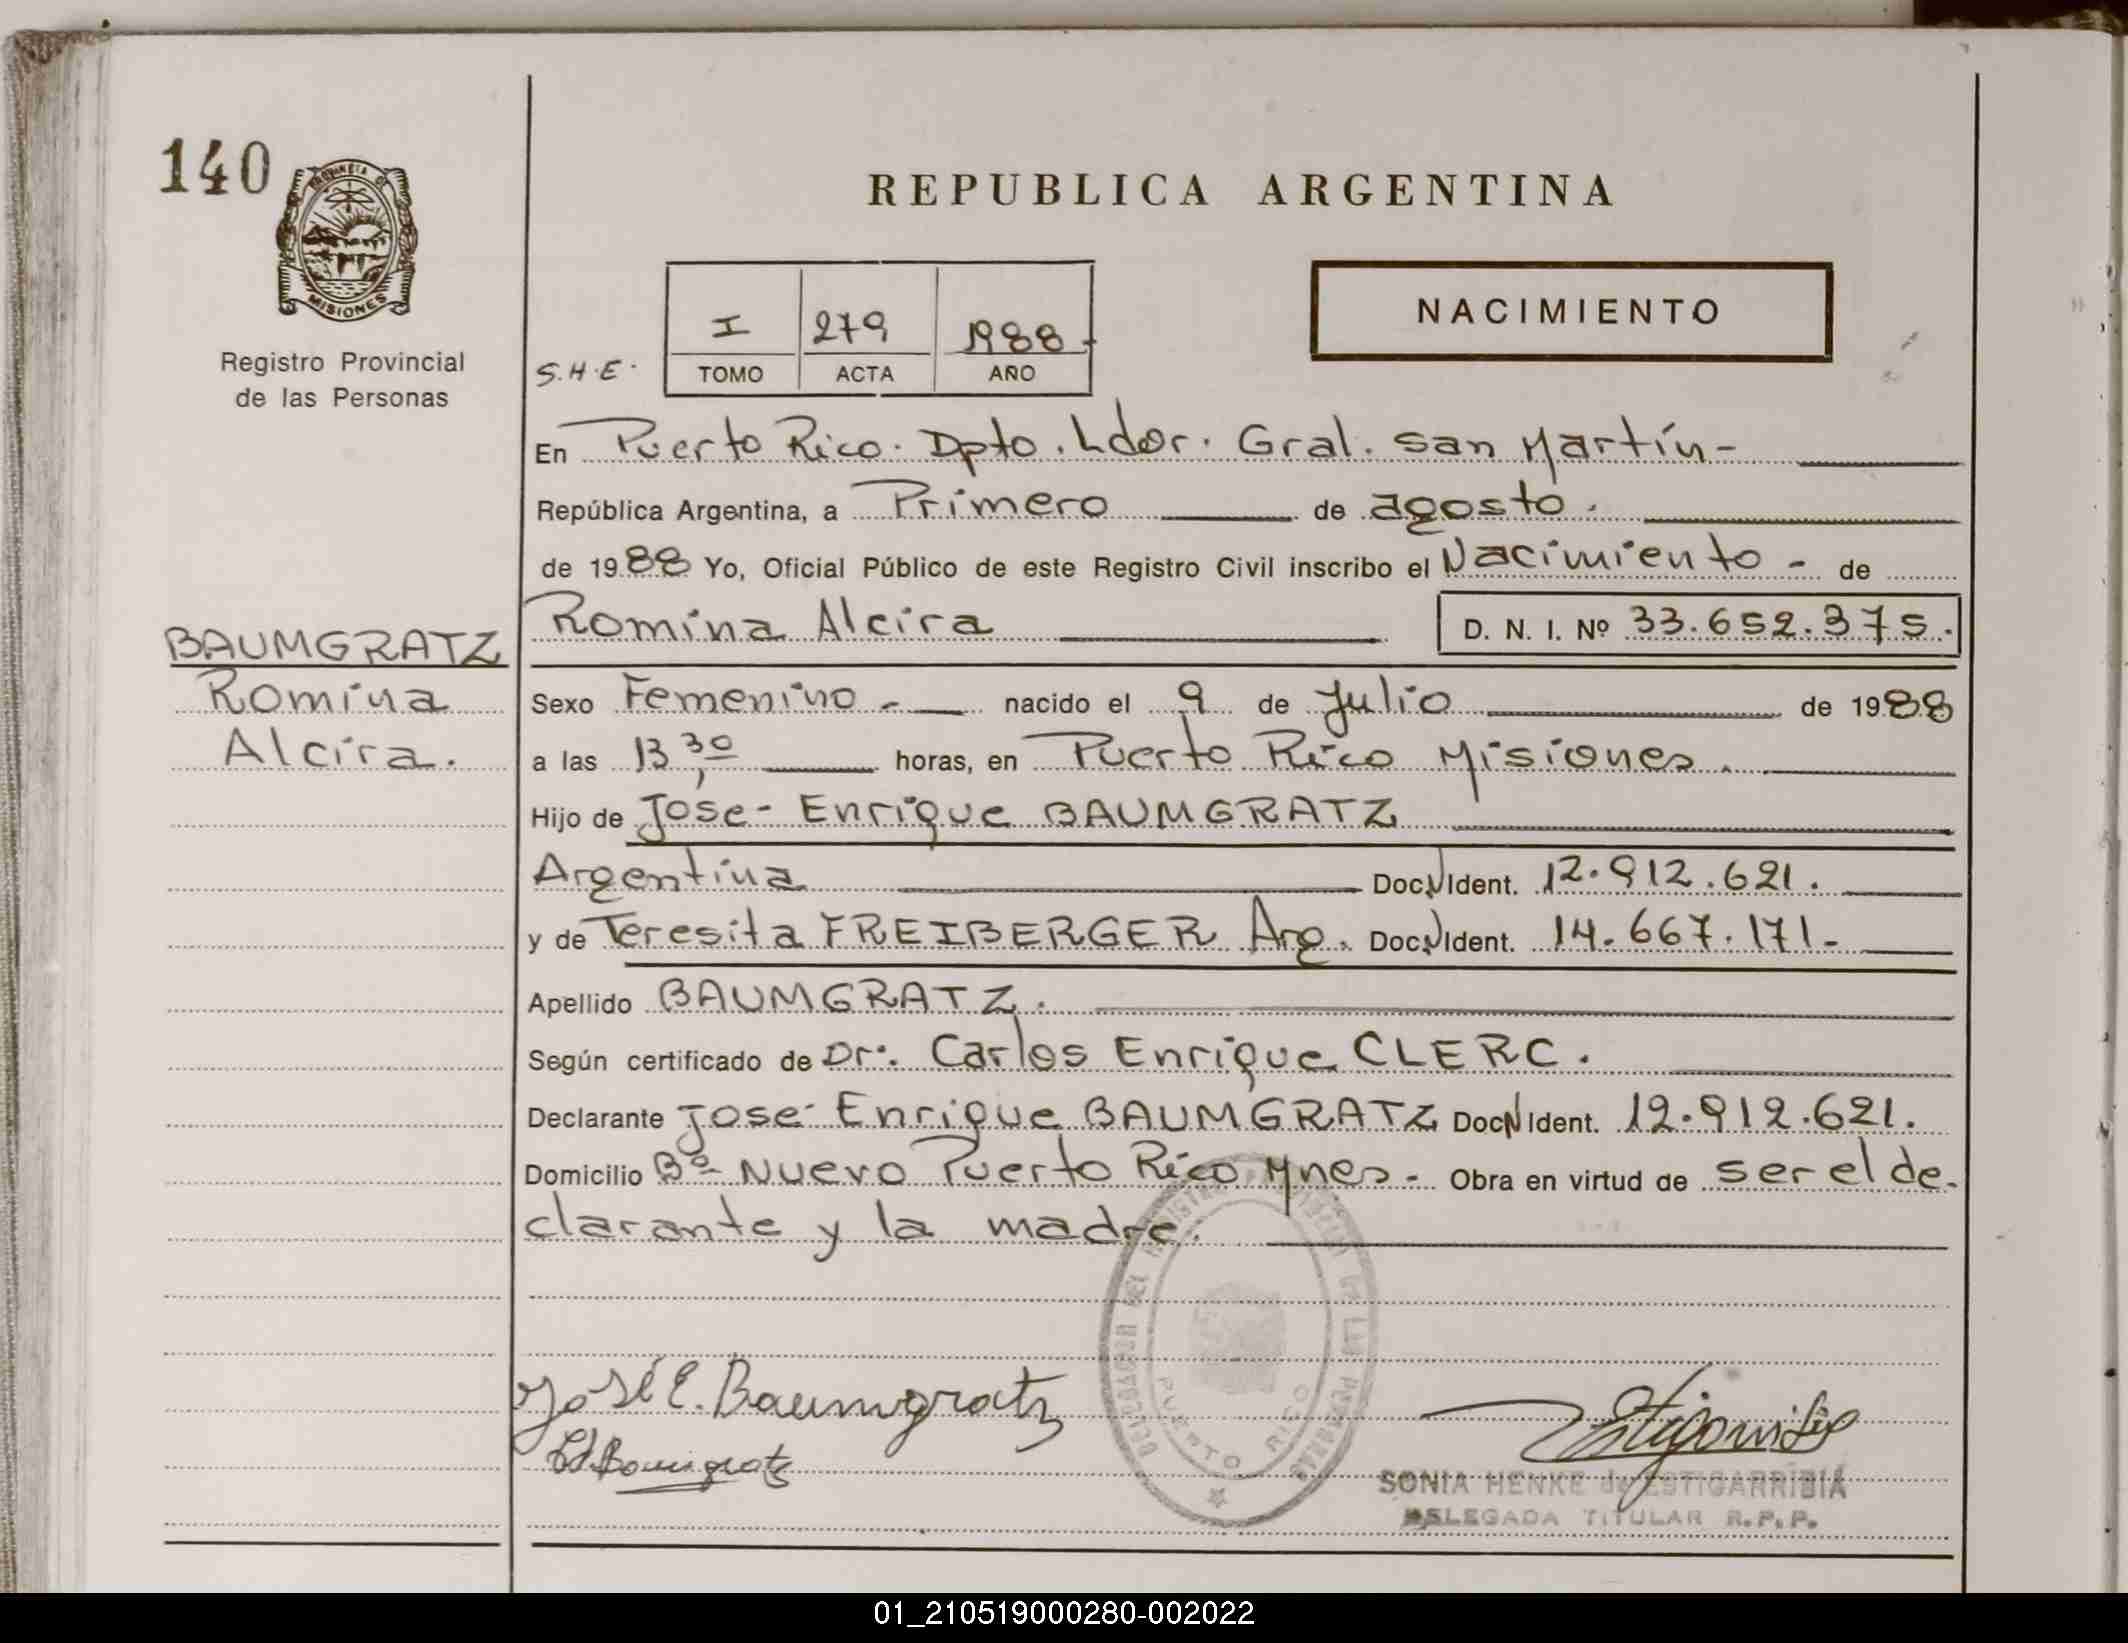 140
PROVINCIA DE
MISIONES
Registro Provincial
de las Personas
REPUBLICA ARGENTINA
NACIMIENTO
I 279 1988
S.H.E. TOMO ACTA AÑO
En Puerto Rico. Dpto. Ldor. Gral. San Martín-
República Argentina, a Primero de agosto.
de 1988 Yo, Oficial Público de este Registro Civil inscribo el Nacimiento - de
Romina Alcira D. N. I. Nº 33.652.375.
BAUMGRATZ
Romina
Alcira.
Sexo Femenino - nacido el 9 de Julio de 1988
a las 13,30 horas, en Puerto Rico Misiones.
Hijo de José Enrique BAUMGRATZ
Argentina Doc. N Ident. 12.912.621.
y de Teresita FREIBERGER Arg. Doc. N Ident. 14.667.171-
Apellido BAUMGRATZ.
Según certificado de Dr. Carlos Enrique CLERC.
Declarante José Enrique BAUMGRATZ Doc. N Ident. 12.912.621.
Domicilio Bº Nuevo Puerto Rico Mnes- Obra en virtud de ser el de-
clarante y la madre.
DELEGACION DEL REGISTRO PROVINCIAL DE LAS PERSONAS
PUERTO RICO
José E. Baumgratz
Baumgratz
SONIA HENKE de ESTIGARRIBIA
DELEGADA TITULAR R.P.P.
01_210519000280-002022